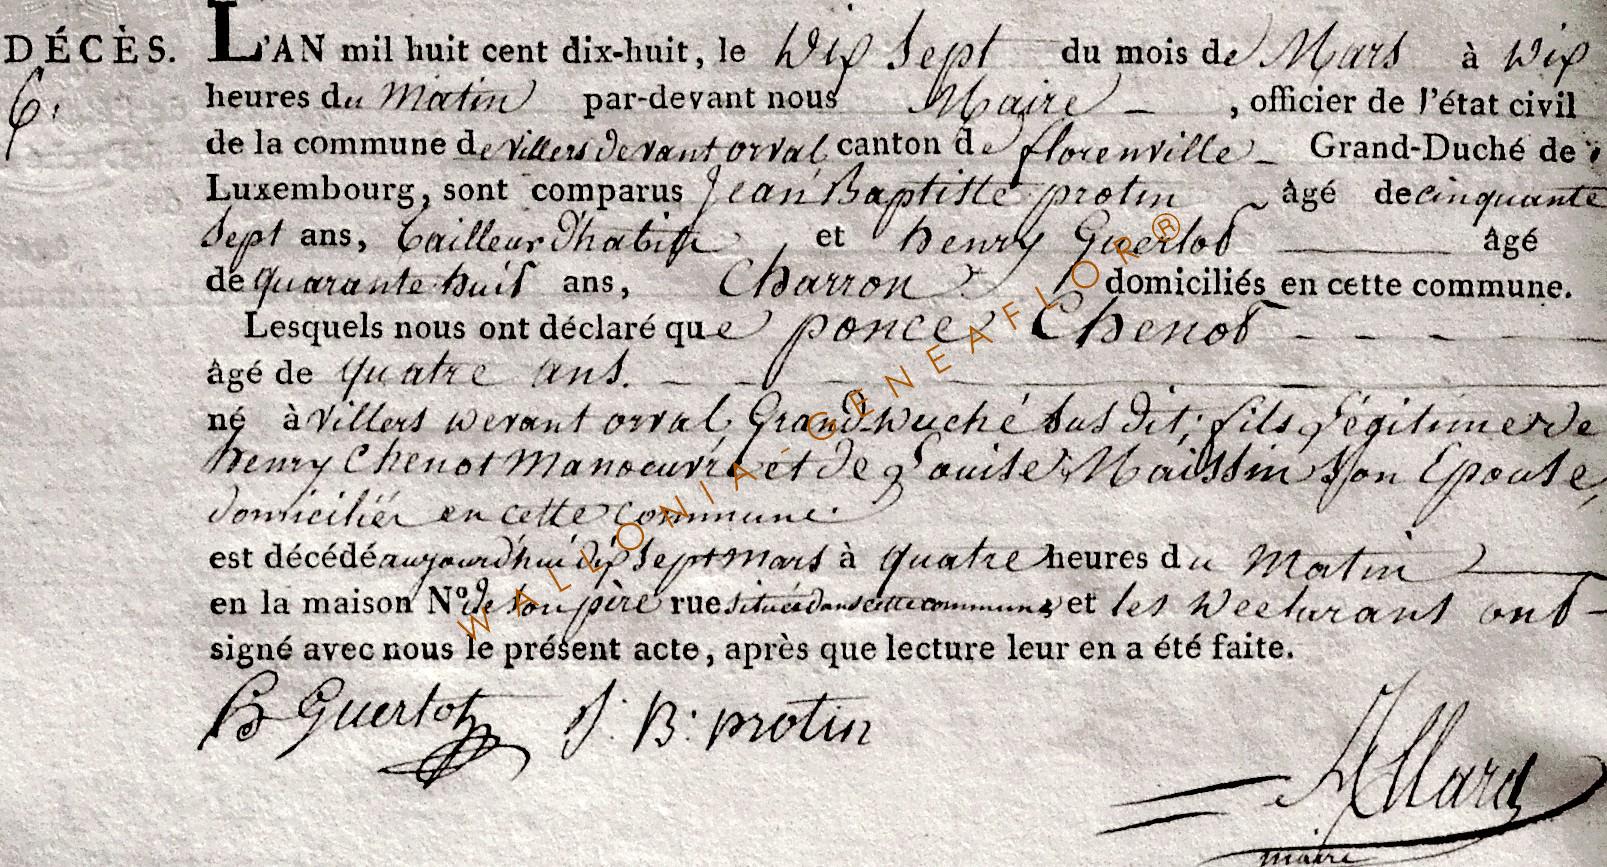 DÉCÈS. L'AN mil huit cent dix-huit, le Dix Sept du mois de Mars à Dix
6. heures du Matin par-devant nous Maire — , officier de l'état civil
de la commune de villers devant orval canton de florenville — Grand-Duché de
Luxembourg, sont comparus Jean Baptiste protin âgé de cinquante
Sept ans, tailleur d'habits et henry Guerlot âgé
de quarante huit ans, Charron domiciliés en cette commune.
Lesquels nous ont déclaré que ponce Chenot - - - - -
âgé de quatre ans. — —
né à villers devant orval, Grand Duché Susdit, fils Légitime de
henry Chenot Manoeuvre et de Louise Maissin Son Epouse,
domiciliés en cette Commune.
est décédé aujourd'hui dix sept mars à quatre heures du Matin
en la maison N° de son père rue située dans cette commune et les Declarant ont
signé avec nous le présent acte, après que lecture leur en a été faite.
H Guerlot J. B. protin
Allard
maire
WALLONIA-GENEAFLOR®